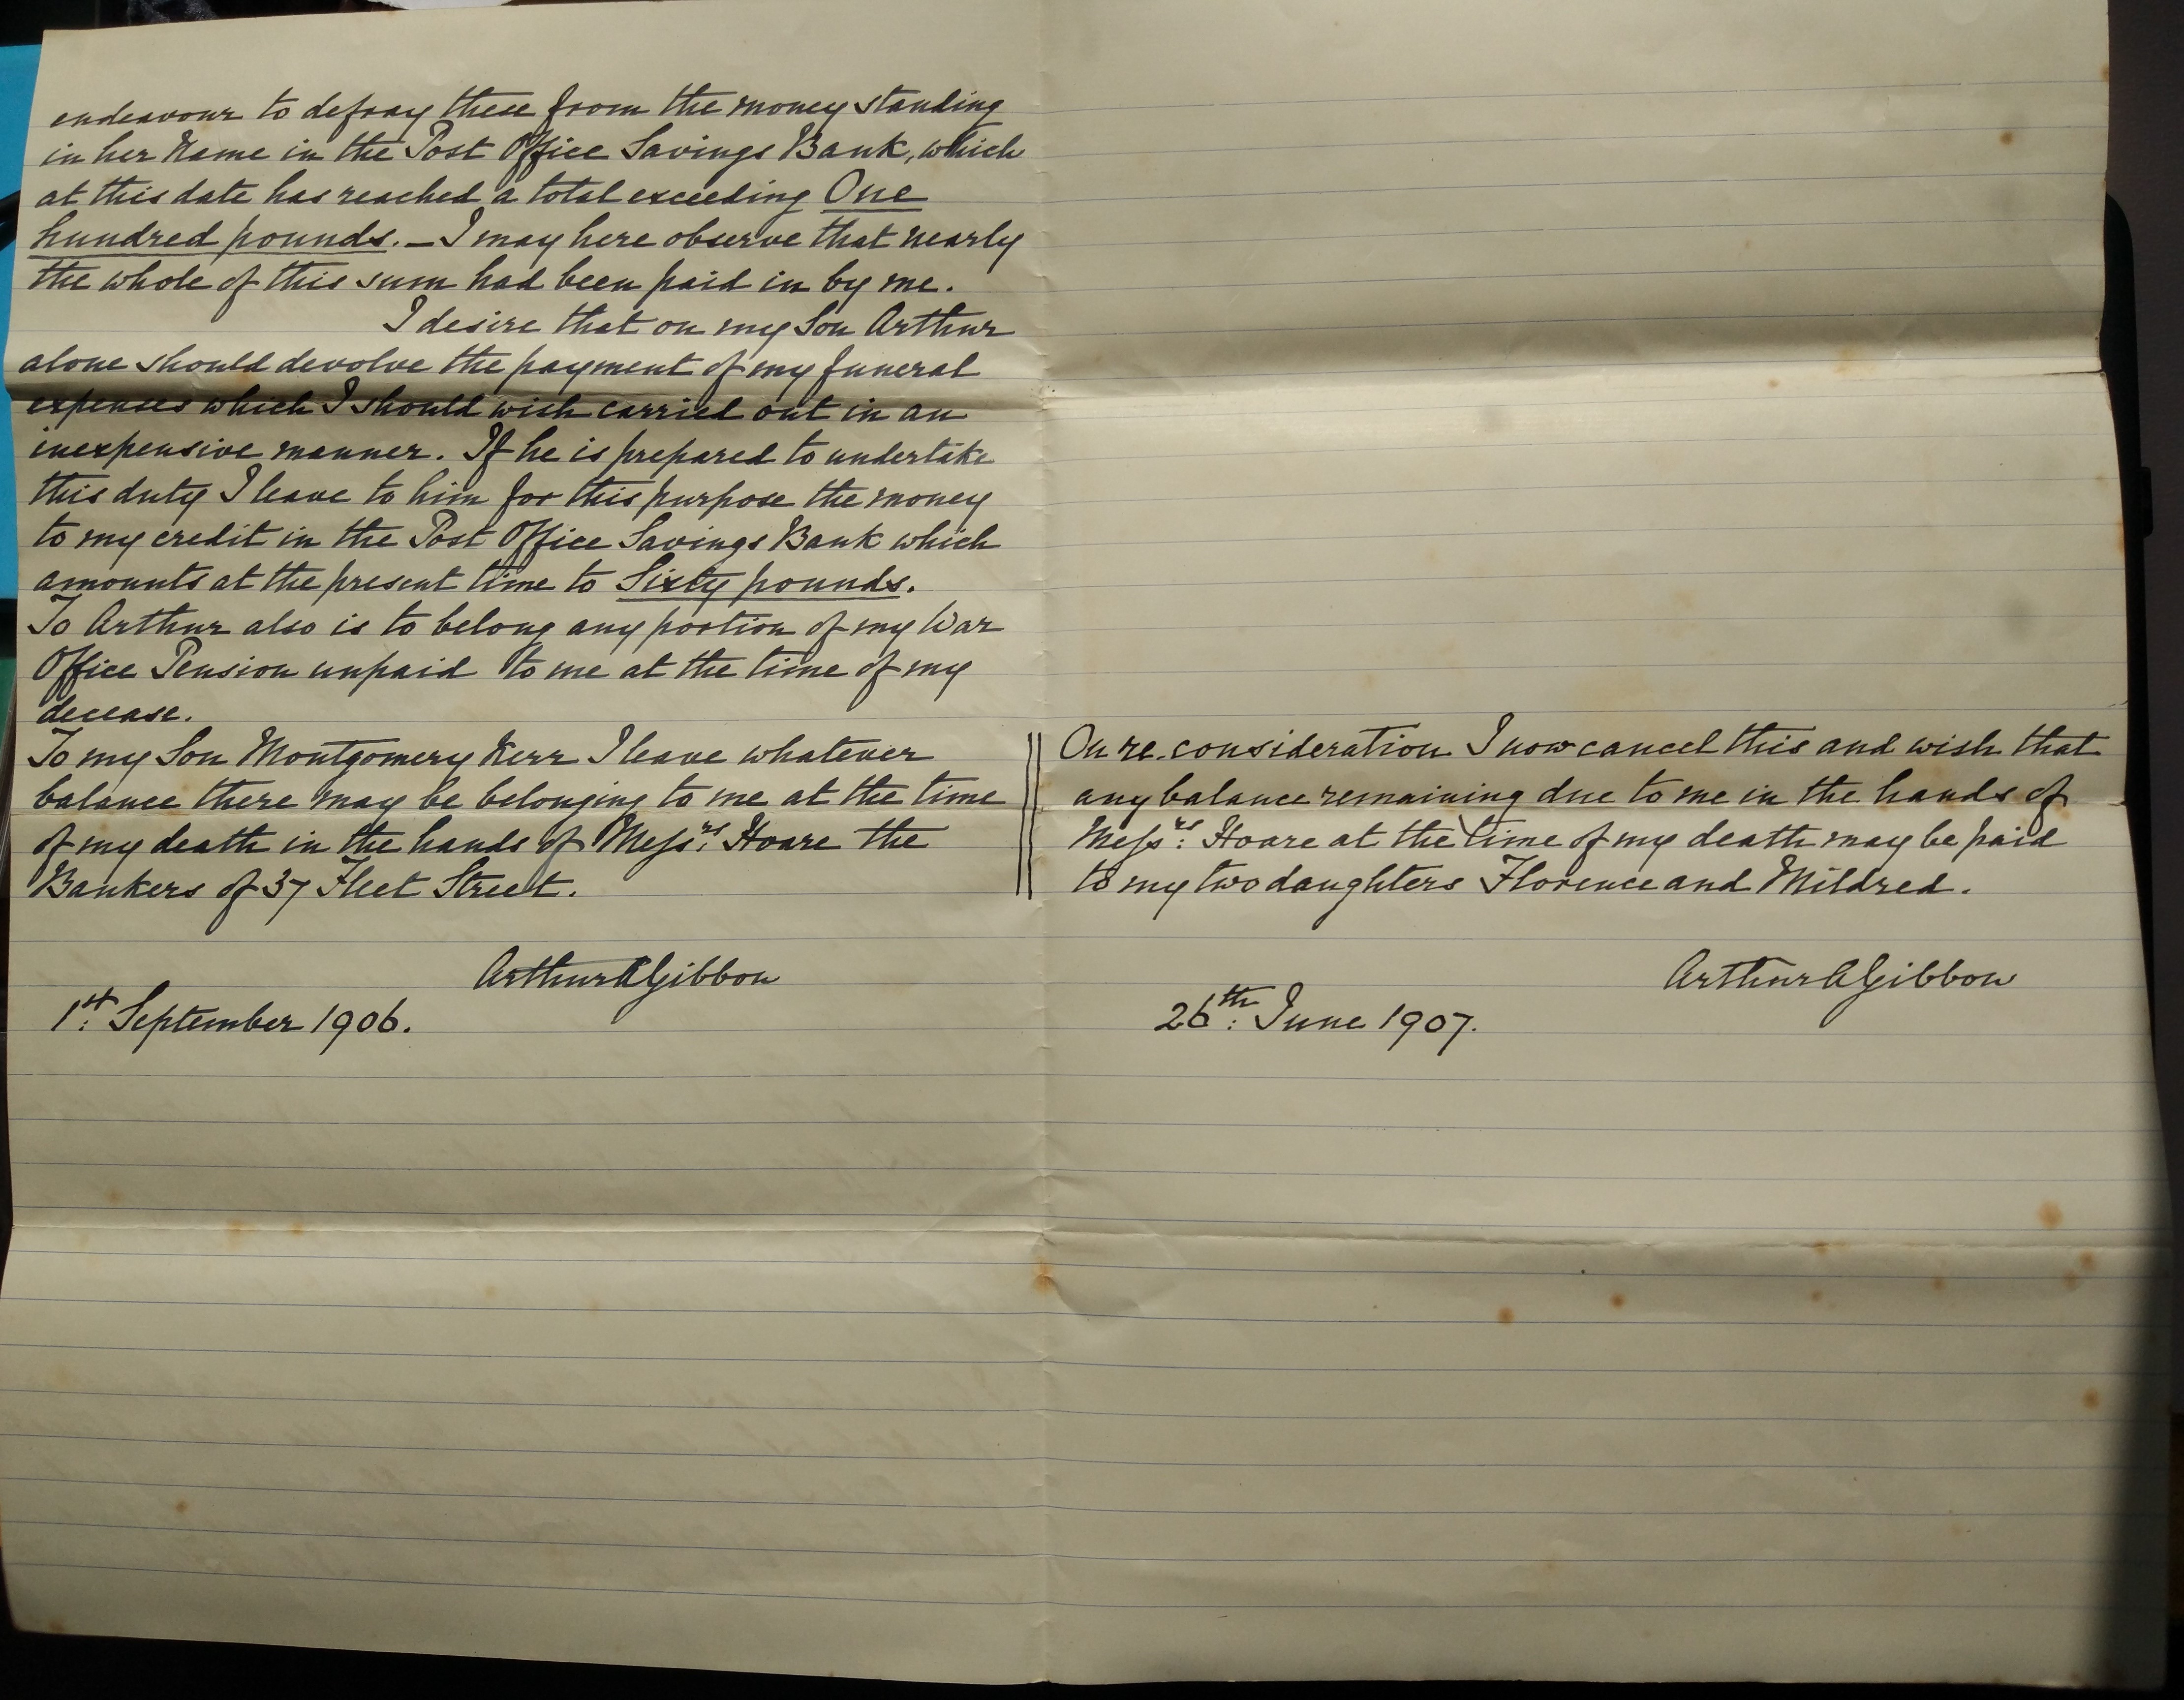 endeavour to defray these from the money standing
in her Name in the Post Office Savings Bank, which
at this date has reached a total exceeding One
hundred pounds. – I may here observe that nearly
the whole of this sum had been paid in by me.
I desire that on my Son Arthur
alone should devolve the payment of my funeral
expenses which I should wish carried out in an
inexpensive manner. If he is prepared to undertake
this duty I leave to him for this purpose the money
to my credit in the Post Office Savings Bank which
amounts at the present time to Sixty pounds.
To Arthur also is to belong any portion of my War
Office Pension unpaid to me at the time of my
decease.
To my Son Montgomery Kerr I leave whatever
balance there may be belonging to me at the time
of my death in the hands of Messrs: Hoare the
Bankers of 37 Fleet Street.
Arthur A Gibbon
1st: September 1906.
On re-consideration I now cancel this and wish that
any balance remaining due to me in the hands of
Messrs: Hoare at the time of my death may be paid
to my two daughters Florence and Mildred.
Arthur A Gibbon
26th: June 1907.